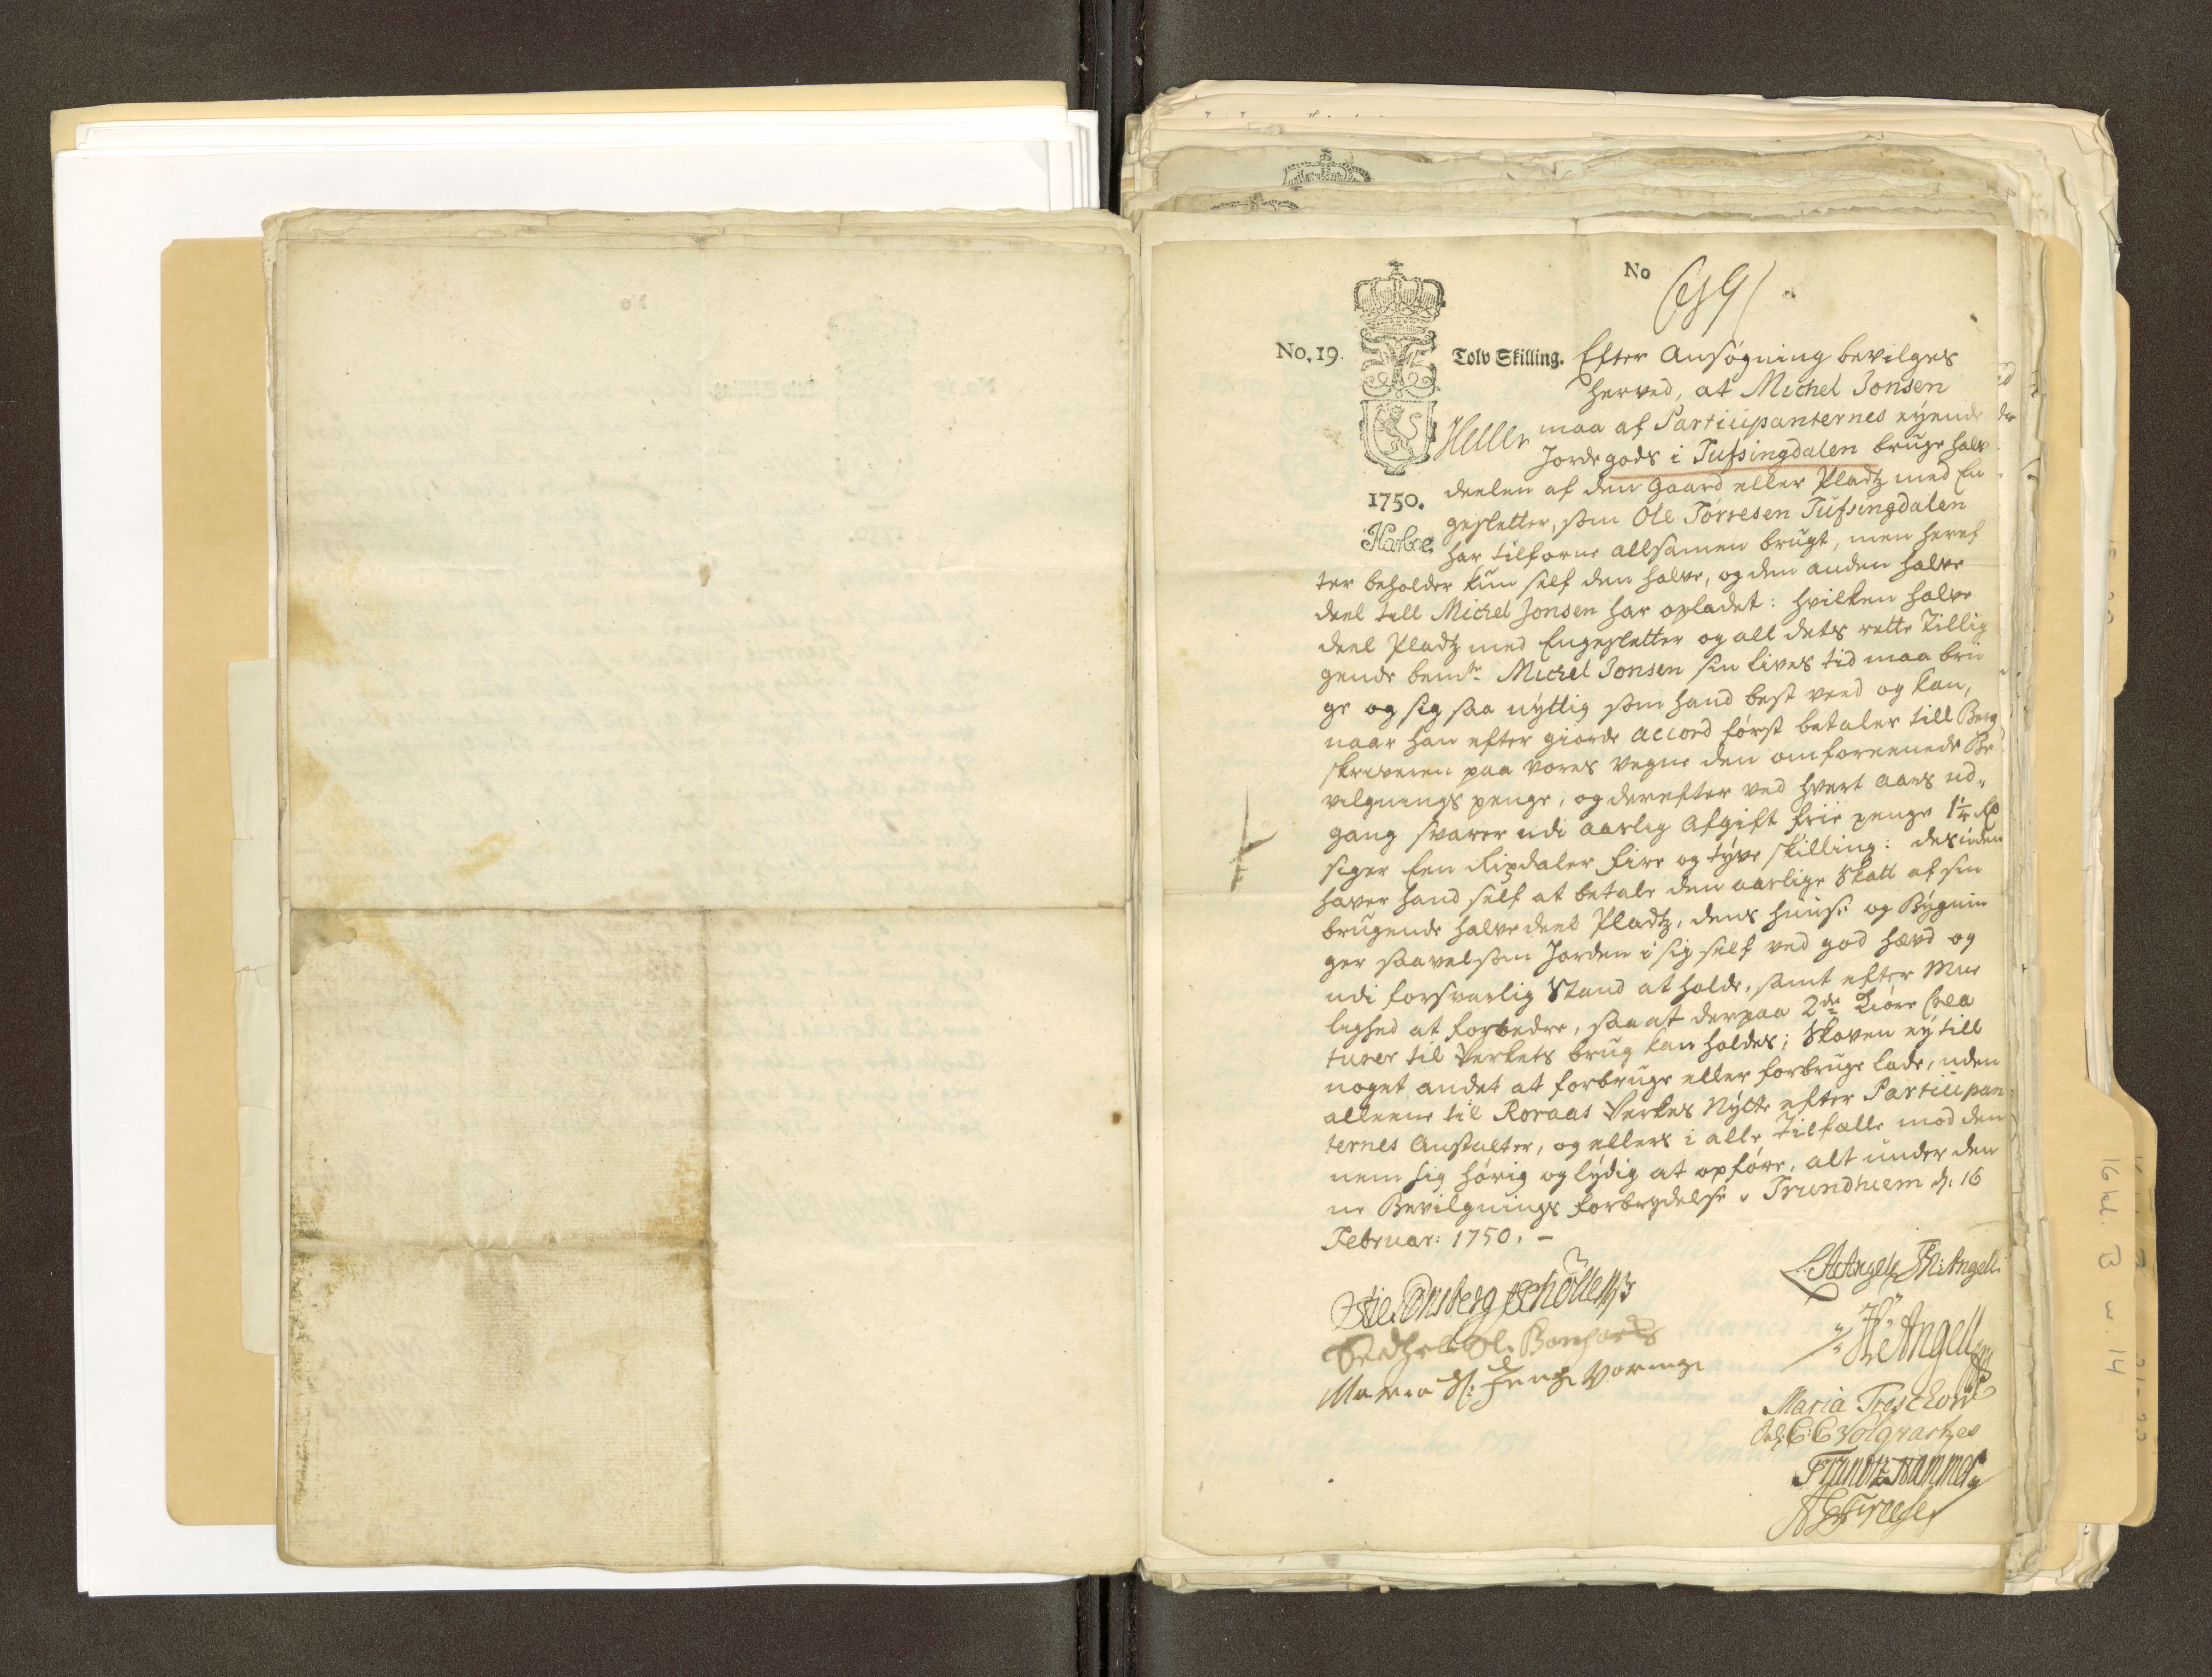 No
No. 19.
Tolv Skilling. Efter Ansøgning bevilges
herved, at Michel Jonsen
maa af Participanternes eyende
Jordegods i Tufsingdalen bruge halv
1750. deelen af den Gaard eller Pladz med En
gesletter, som Ole Torresen Tufsingdalen
har tilforne allsamen brugt, men heref
ter beholder kun self den halve, og den anden halve
deel till Michel Jonsen har opladet: hvilken halve
deel Pladz med Engesletter og all dets rette Tillig
gende bemte Michel Jonsen sin Lives tid maa brü
ge og sig saa nyttig som hand best veed og kan,
naar han efter giorde Accord først betaler till Berg
skriveren paa Vores Vegne den omforeenede Be
vilgnings penge, og derefter ved hvert Aars ud„
gang svarer udi aarlig Afgift frie penge 1¼ Rd
siger Een Rixdaler fire og tyve skilling: desuden
haver hand self at betale den aarlige Skatt af sin
brugende halve deel Pladz, dens Huuse og Bygnin
ger saavelsom Jorden i sig self ved god hævd og
udi forsvarlig Stand at holde, samt efter Mue
lighed at forbedre, saa at derpaa 2de Kiøre Crea
turer til Verkets brug kan holdes; Skoven ey till
noget andet at forbruge eller forbruge lade, uden
alleene til Roraas Verkes Nytte efter Participan
ternes Anstalter, og ellers i alle Tilfælle mod den
nem sig hørig og lydig at opføre, alt under den
ne Bevilgnings forbrydelse. Trundhiem d: 16
Februar: 1750. –
Tonsberg Schøller
Angell
Angell
Maria
Maria Treschow
Hammer
16 kl. B nr. 14